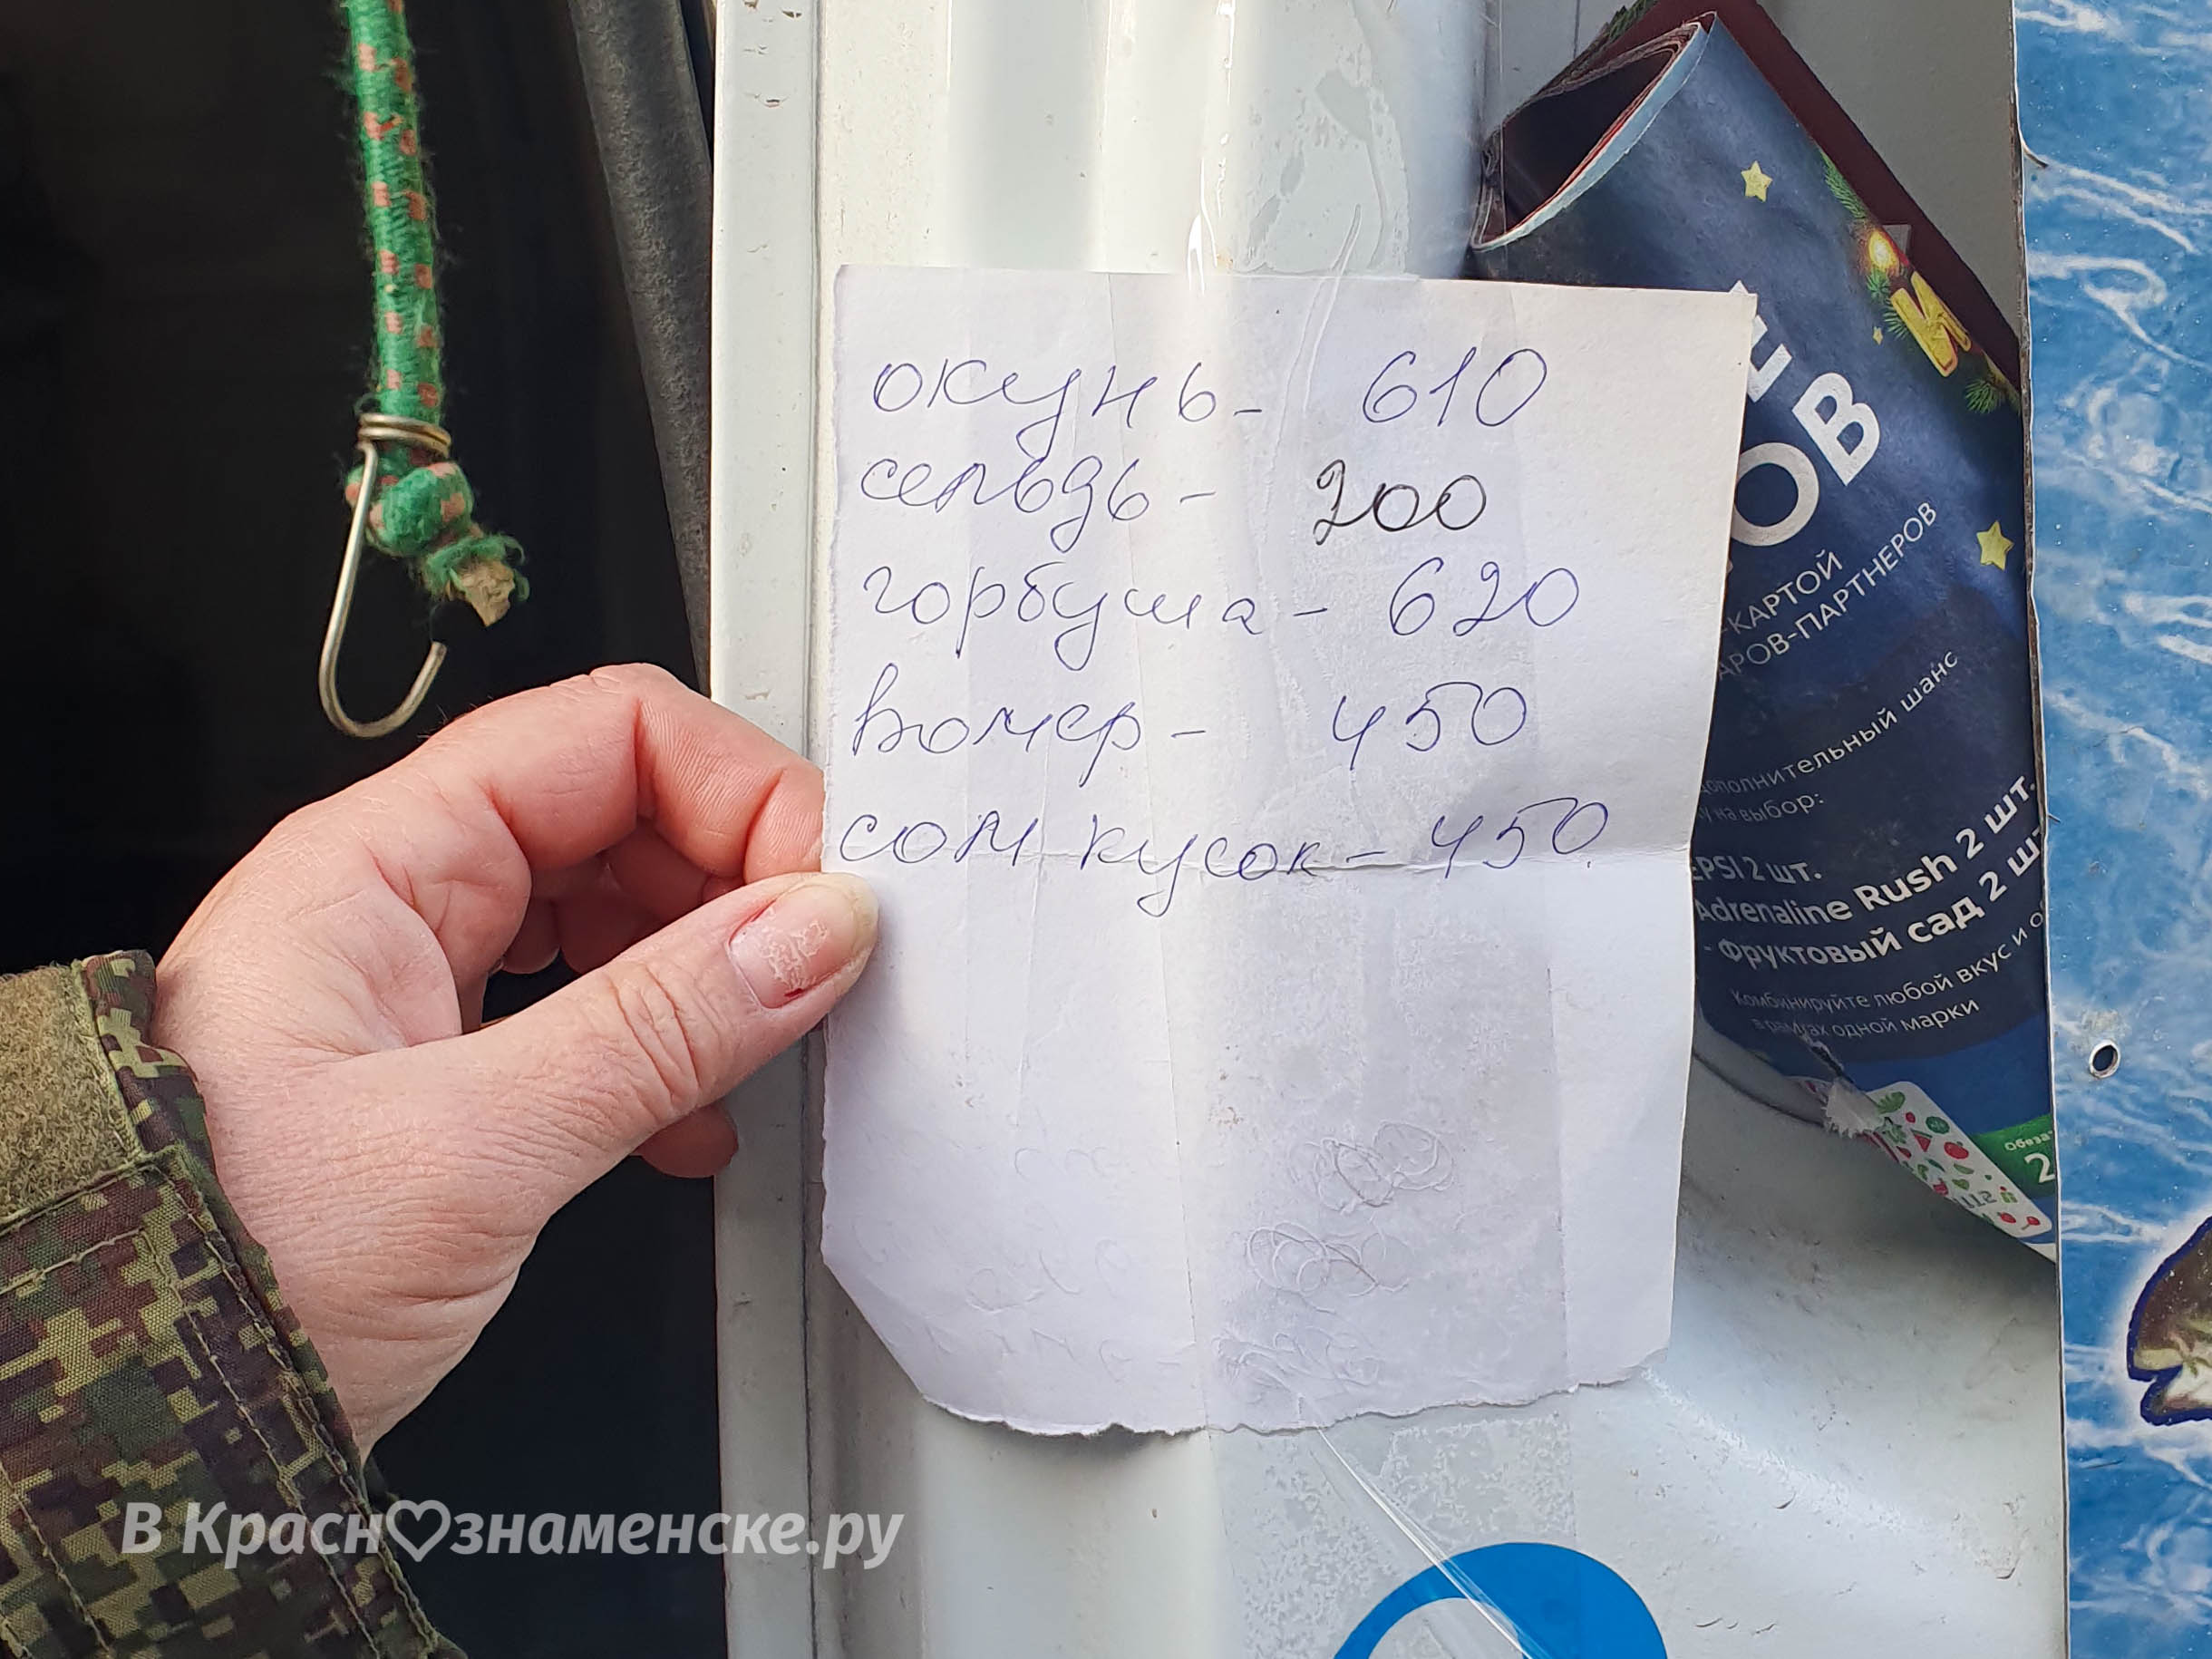 окунь - 610
сельдь - 200
горбуша - 620
вомер - 450
сом кусок - 450
И
ОВ
-КАРТОЙ
АРОВ-ПАРТНЕРОВ
дополнительный шанс
на выбор:
EPSI 2 шт.
Adrenaline Rush 2 шт.
- Фруктовый сад 2 шт
Комбинируйте любой вкус и о
в рамках одной марки
Обяза
2
В Красн♡знаменске.ру